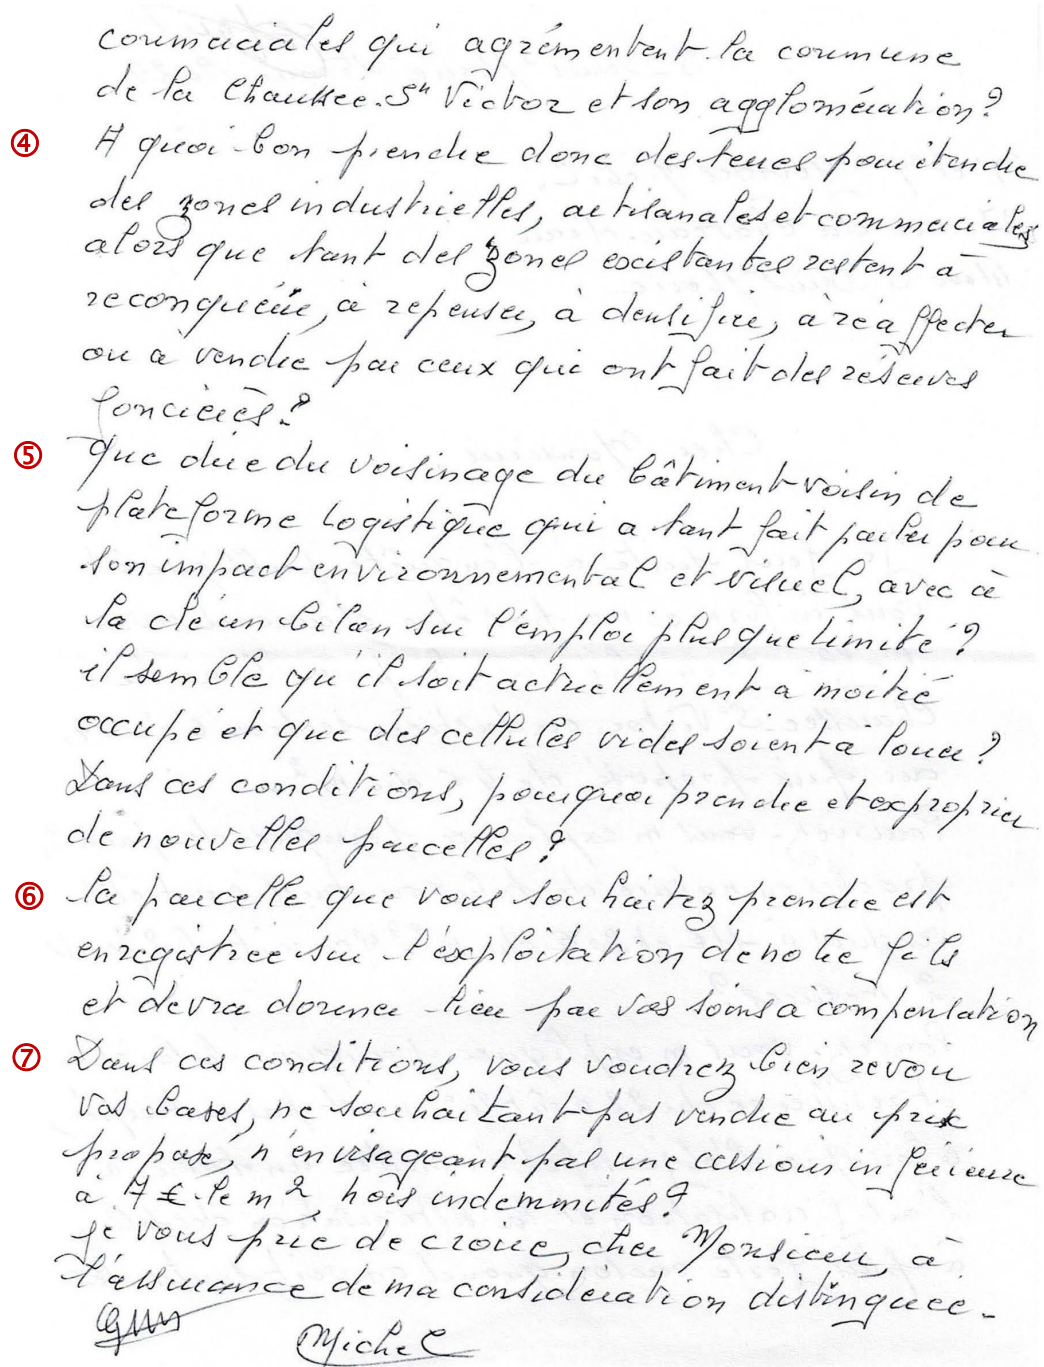 commerciales qui agrémentent la commune
de la Chaussée St Victor et son agglomération?
④ A quoi bon prendre donc des terres pour étendre
des zones industrielles, artisanales et commerciales
alors que tant des zones existantes restent à
reconquérir, à repenser, à densifier, à réaffecter
ou à vendre par ceux qui ont fait des réserves
foncières?
⑤ Que dire du voisinage du bâtiment voisin de
plateforme logistique qui a tant fait parler pour
son impact environnemental et visuel, avec à
la clé un bilan sur l'emploi plus que limité?
il semble qu'il soit actuellement à moitié
occupé et que des cellules vides soient à louer?
Dans ces conditions, pourquoi prendre et exproprier
de nouvelles parcelles?
⑥ la parcelle que vous souhaitez prendre est
enregistrée sur l'exploitation de notre fils
et devra donner lieu par vos soins à compensation
⑦ Dans ces conditions, vous voudrez bien revoir
vos bases, ne souhaitant pas vendre au prix
proposé, n'envisageant pas une cession inférieure
à 7 € le m2, hors indemnités?
je vous prie de croire, cher Monsieur, à
l'assurance de ma considération distinguée.
Michel